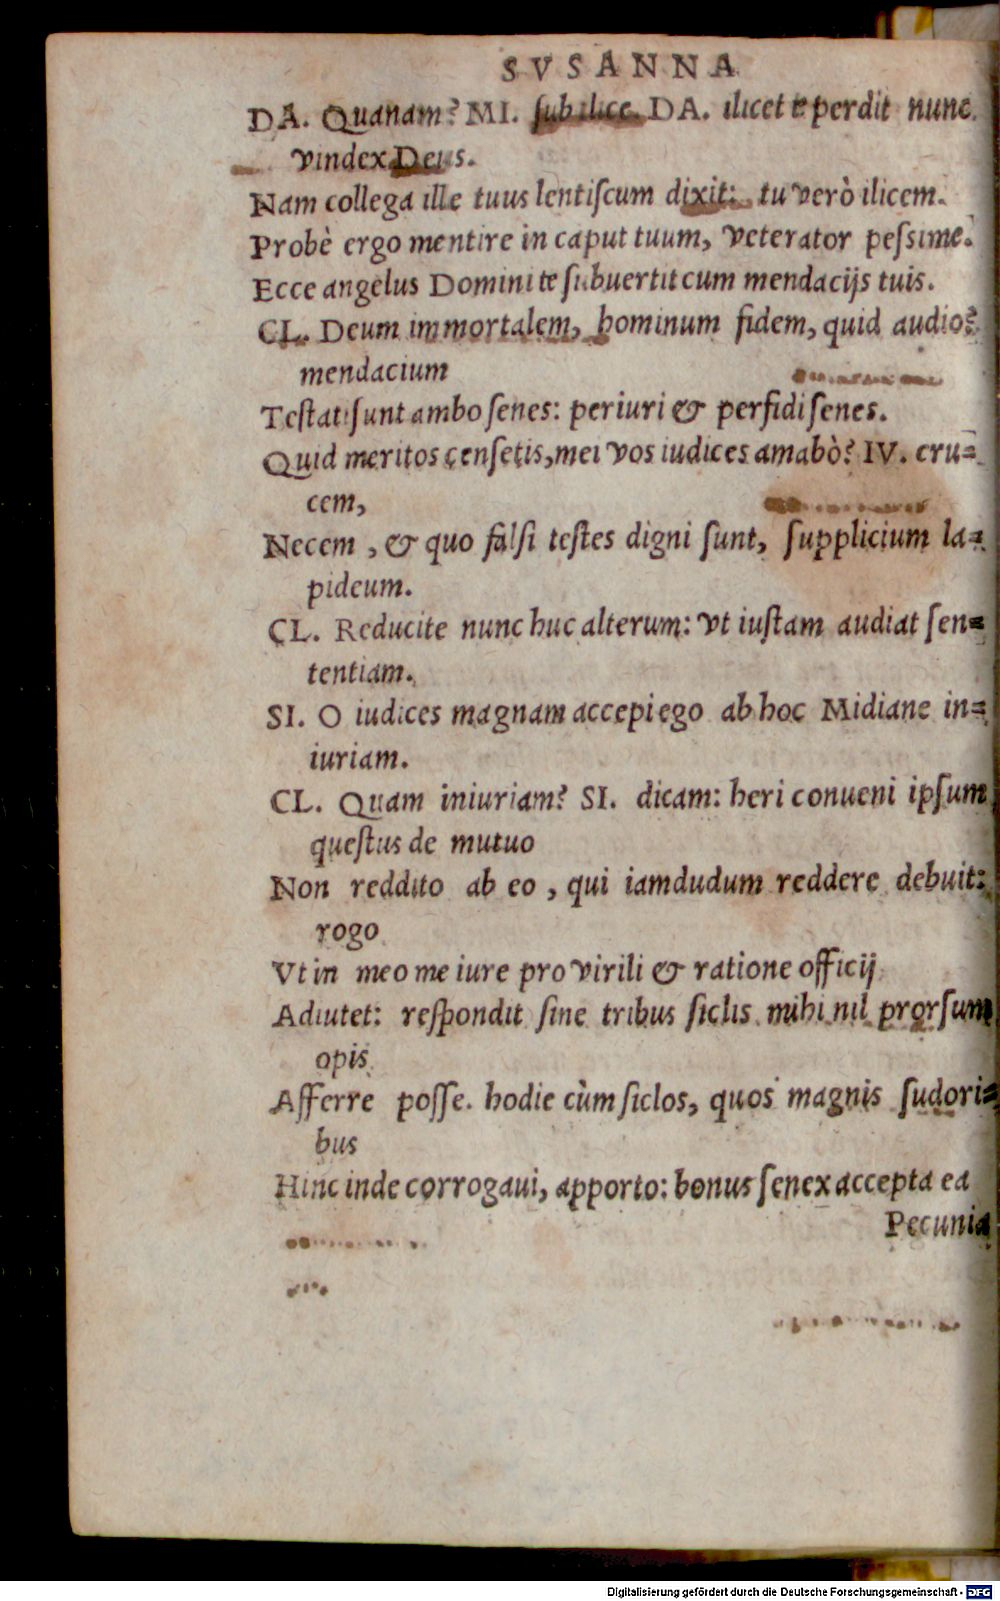 SVSANNA
DA. Quanam? MI. sub ilice. DA. ilicet te perdit nunc
vindex Deus.
Nam collega ille tuus lentiscum dixit: tu verò ilicem.
Probè ergo mentire in caput tuum, veterator pessime.
Ecce angelus Domini te subuertit cum mendacijs tuis.
CL. Deum immortalem, hominum fidem, quid audio?
mendacium
Testati sunt ambo senes: periuri & perfidi senes.
Quid meritos censetis, mei vos iudices amabò? IV. cru=
cem,
Necem, & quo falsi testes digni sunt, supplicium la=
pideum.
CL. Reducite nunc huc alterum: vt iustam audiat sen=
tentiam.
SI. O iudices magnam accepi ego ab hoc Midiane in=
iuriam.
CL. Quam iniuriam? SI. dicam: heri conueni ipsum
questus de mutuo
Non reddito ab eo, qui iamdudum reddere debuit:
rogo
Vt in meo me iure pro virili & ratione officij
Adiutet: respondit sine tribus siclis mihi nil prorsum
opis
Afferre posse. hodie cùm siclos, quos magnis sudori=
bus
Hinc inde corrogaui, apporto: bonus senex accepta ea
Pecunia
Digitalisierung gefördert durch die Deutsche Forschungsgemeinschaft - DFG